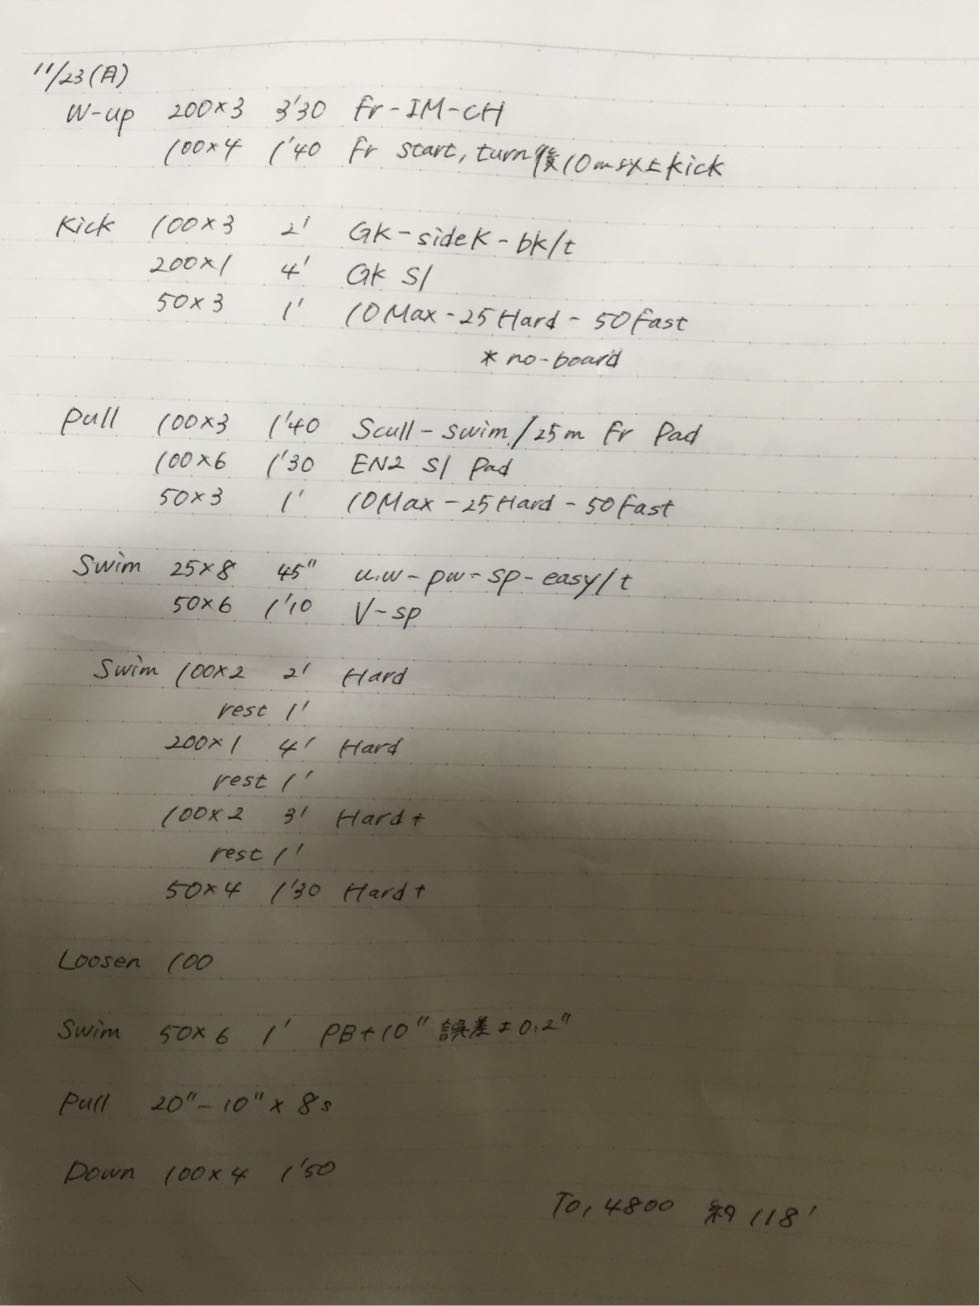 11/23(月)
W-up 200×3 3'30 Fr-IM-CH
100×4 1'40 Fr start, turn後10m以上kick
Kick 100×3 2' GK-sideK-bk/t
200×1 4' GK S1
50×3 1' 10Max-25Hard-50Fast
*no-board
Pull 100×3 1'40 Scull-swim/25m Fr Pad
100×6 1'30 EN2 S1 Pad
50×3 1' 10Max-25Hard-50Fast
Swim 25×8 45" u.w-pw-sp-easy/t
50×6 1'10 V-sp
Swim 100×2 2' Hard
rest 1'
200×1 4' Hard
rest 1'
100×2 3' Hard+
rest 1'
50×4 1'30 Hard+
Loosen 100
Swim 50×6 1' PB+10" 誤差±0.2"
Pull 20"-10"×8s
Down 100×4 1'50
To, 4800 約118'